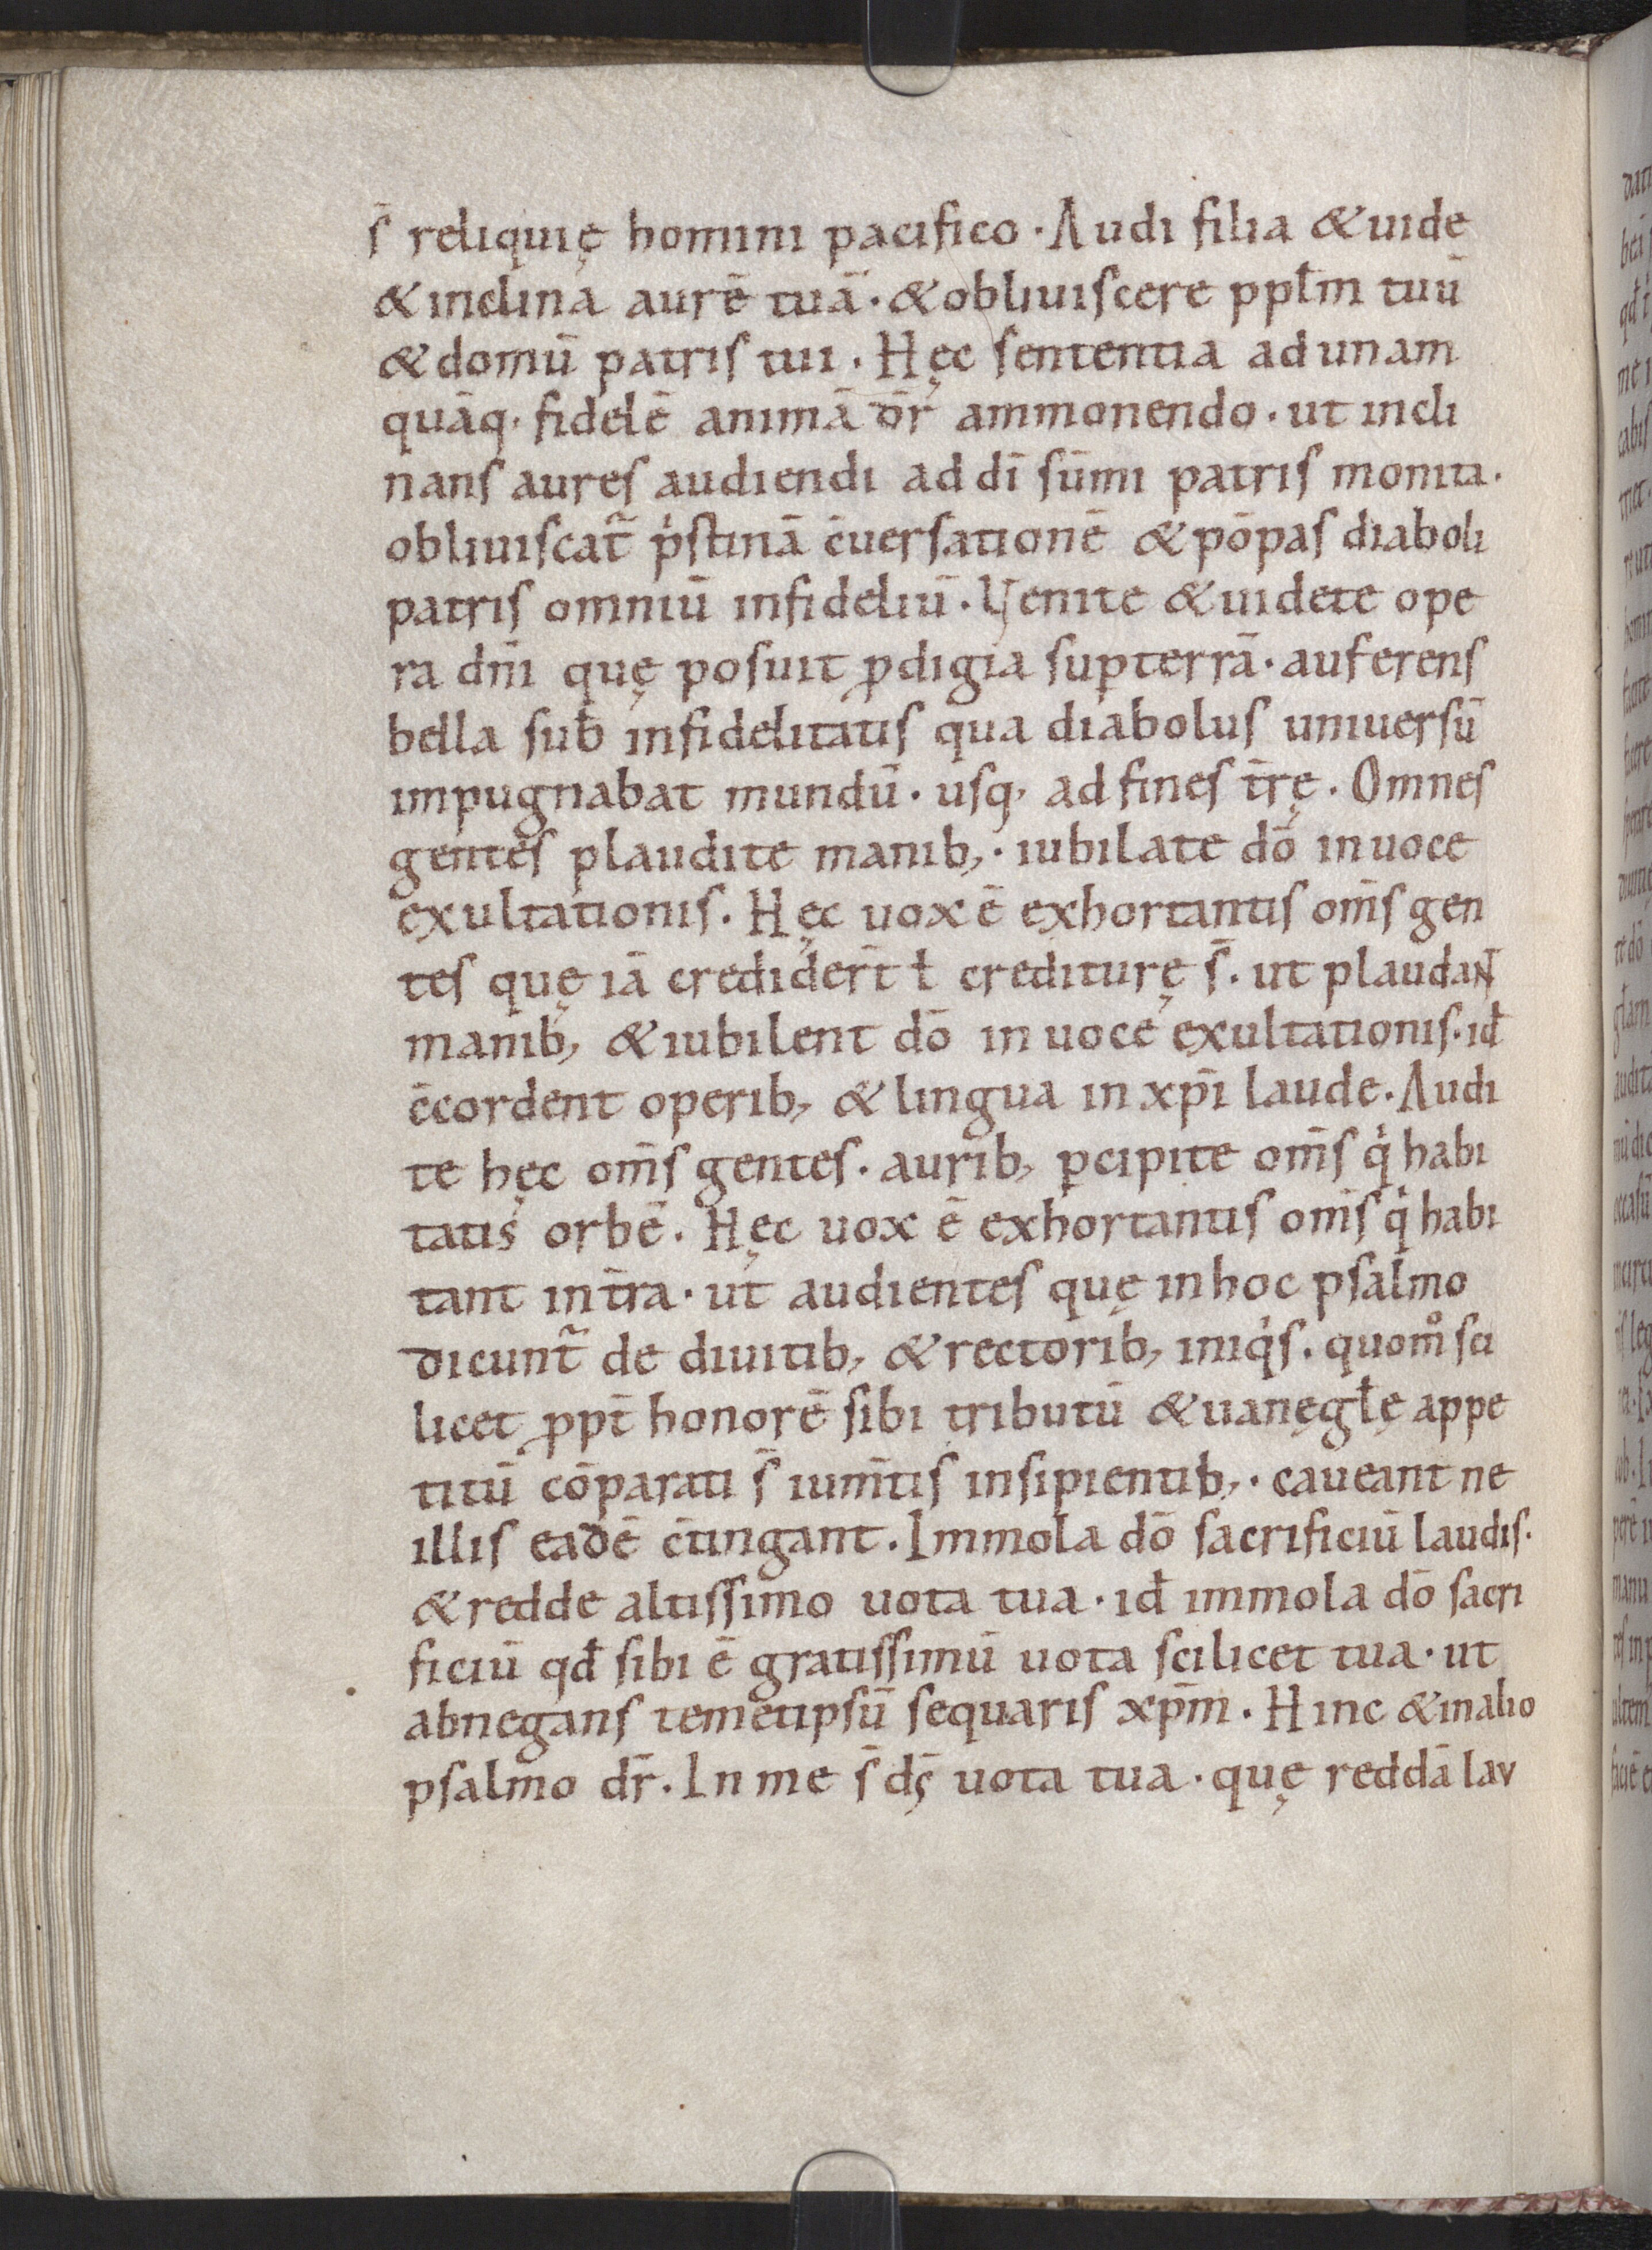 s̄ reliquię homini pacifico · Audi filia & uide
& inclina aurē tuā · & obliuiscere ppl̄m tuū
& domū patris tui . Hęc sententia ad unam
quāq; fidelē animā dr̄ ammonendo · ut incli
nans aures audiendi ad dī sūmi patris monita ·
obliuiscat̃ pͥstinā c̄uersationē & pōpas diaboli
patris omniū infideliū . Venite & uidete ope
ra dn̄i quę posuit ꝓdigia suꝑ terrā · auferens
bella sub infidelitatis qua diabolus uniuersū
impugnabat mundū · usq; ad fines tr̄ę . Omnes
gentes plaudite manib; · iubilate dō in uoce
exultationis . Hęc uox ē exhortantis om̄s gen
tes quę iā credidert̄ ł crediturę s̄ · ut plaudaN̄
manib; & iubilent dō in uoce exultationis · id̄
c̄cordent operib; & lingua in xp̄i laude . Audi
te hęc om̄s gentes · aurib; ꝑcipite om̄s qͥ habi
tatis orbē . Hęc uox ē exhortantis om̄s qͥ habi
tant in tr̄a · ut audientes quę in hoc psalmo
dicunt̃ de diuitib; & rectorib; iniqͥs . quom̊ sci
licet ꝓpt̄ honorē sibi tributū & uanę gl̄ę appe
titū cōparati s̄ ium̄tis insipientib; · caueant ne
illis eadē c̄tingant . Immola dō sacrificiū laudis ·
& redde altissimo uota tua · id̄ immola dō sacri
ficiū qd̄ sibi ē gratissimū uota scilicet tua · ut
abnegans temetipsū sequaris xp̄m . Hinc & in alio
psalmo dr̄ . In me s̄ ds̄ uota tua · quę reddā lau